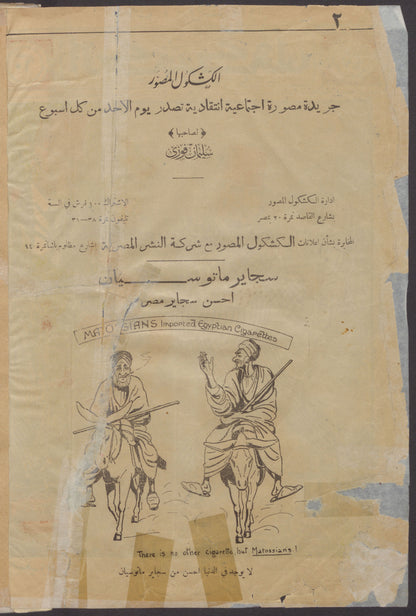 ٢
الكشكول المصور
جريدة مصورة اجتماعية انتقادية تصدر يوم الاحد من كل اسبوع
﴿ لصاحبها ﴾
سليمان فوزى
ادارة الكشكول المصور
بشارع القاصد نمرة ٢٠ بمصر
الاشتراك ١٠٠ قرش فى السنة
تليفون نمرة ٣٨—٣١
المخابرة بشأن اعلانات الكشكول المصور مع شركة النشر المصرية بشارع مظلوم باشا نمرة ١٤
سجاير ماتوسيان
احسن سجاير مصر
MATOSSIANS Imported Egyptian Cigarettes
There is no other cigarette but Matossians!
لا يوجد فى الدنيا احسن من سجاير ماتوسيان